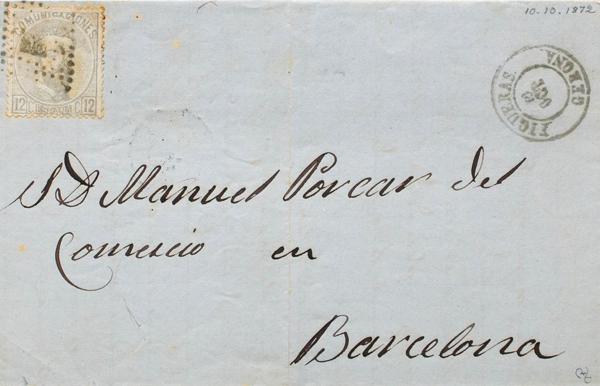 10.10.1872
COMUNICACIONES
12 C 12
FIGUERAS
GERONA
OCT
S D Manuel Porcar del
Comercio en
Barcelona